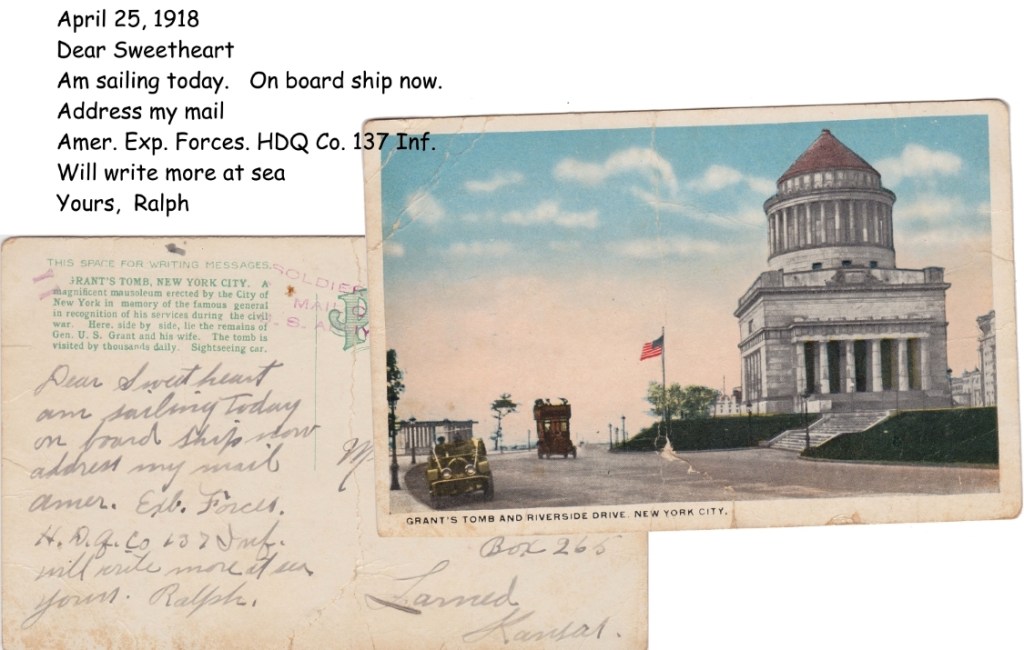 April 25, 1918
Dear Sweetheart
Am sailing today. On board ship now.
Address my mail
Amer. Exp. Forces. HDQ Co. 137 Inf.
Will write more at sea
Yours, Ralph
THIS SPACE FOR WRITING MESSAGES.
GRANT'S TOMB, NEW YORK CITY. A
magnificent mausoleum erected by the City of
New York in memory of the famous general
in recognition of his services during the civil
war. Here, side by side, lie the remains of
Gen. U. S. Grant and his wife. The tomb is
visited by thousands daily. Sightseeing car.
SOLDIE
MAIL
Dear Sweetheart
am sailing today
on board ship now
address my mail
amer. Exp. Forces.
H.D.Q. Co 137 Inf.
will write more at sea
yours. Ralph.
M
Box 265
Larned
Kansas.
GRANT'S TOMB AND RIVERSIDE DRIVE, NEW YORK CITY.